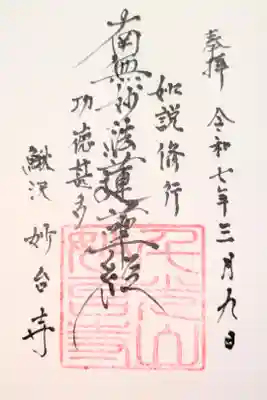 奉拝 令和七年三月九日
如説修行
南無妙法蓮華経
功徳甚多
鰍沢 妙台寺